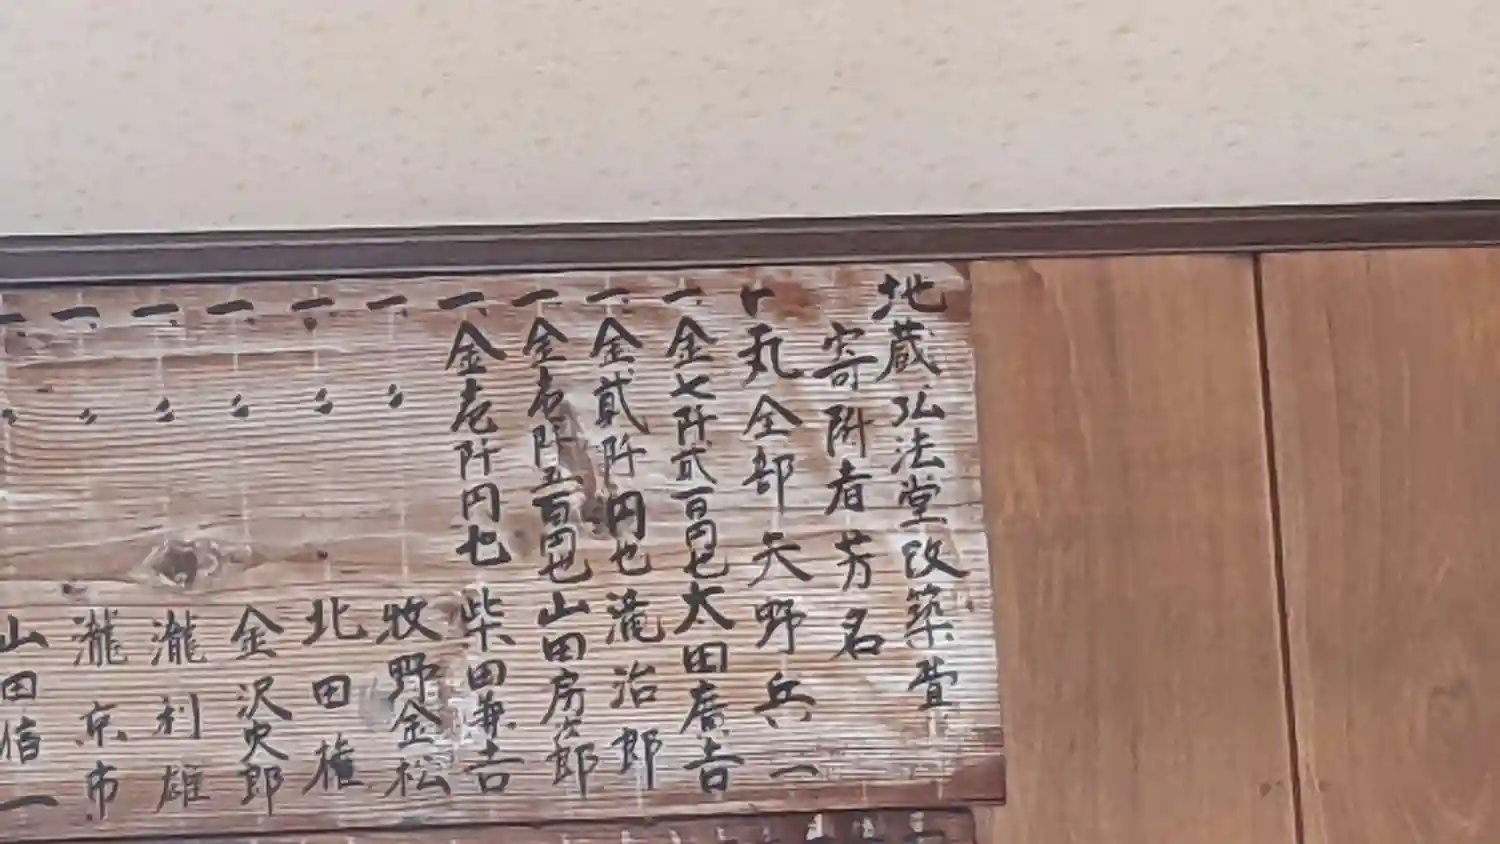 地蔵弘法堂改築費
寄附者芳名
丸全部矢野兵一
一金七阡貳百円也太田廣吉
一金貳阡円也滝治郎
一金壱阡五百円也山田房次郎
一金壱阡円也柴田兼吉
一〃牧野金松
一〃北田権
一〃金沢史郎
一〃瀧利雄
一〃瀧京市
一〃山田信一